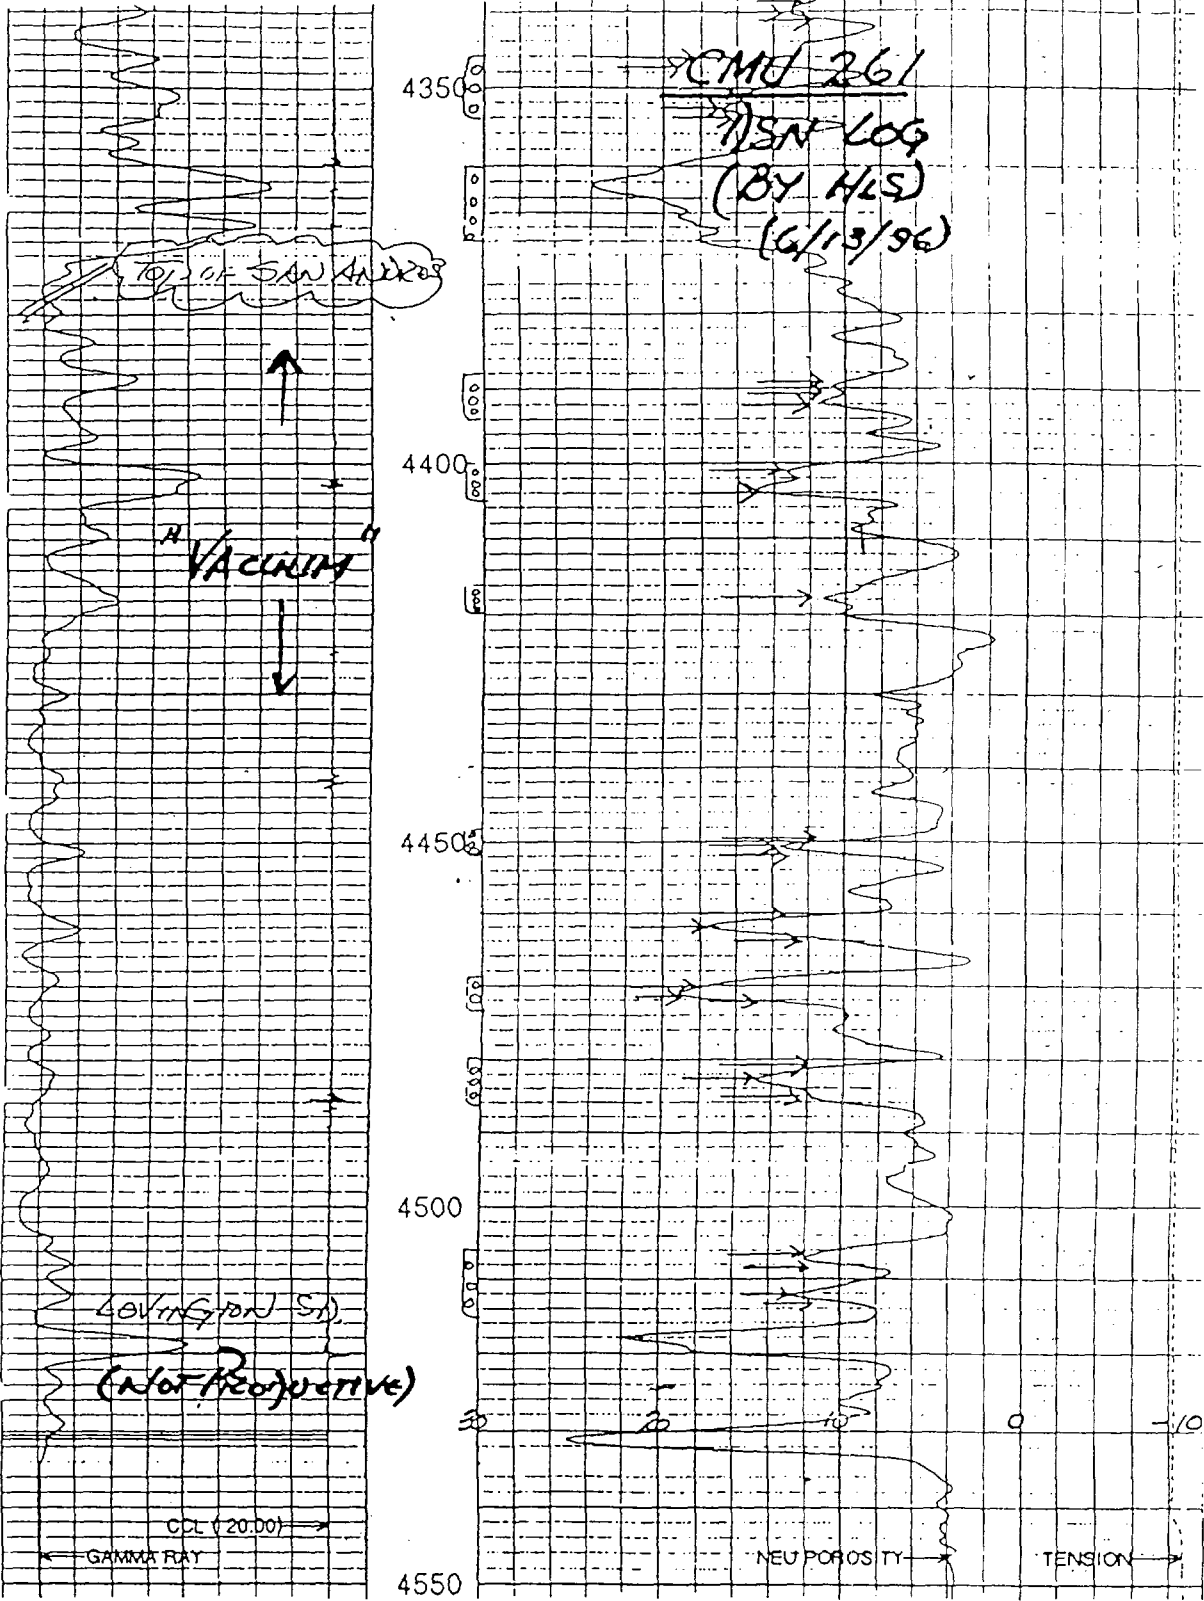 CMU 261
DSN LOG
(BY HLS)
(6/13/96)
4350
TOP OF SAN ANDRES
4400
"VACUUM"
4450
4500
LOVINGTON SD.
(NOT PRODUCTIVE)
30 20 10 0 -10
CCL (20.00)
GAMMA RAY
NEU POROSITY
TENSION
4550